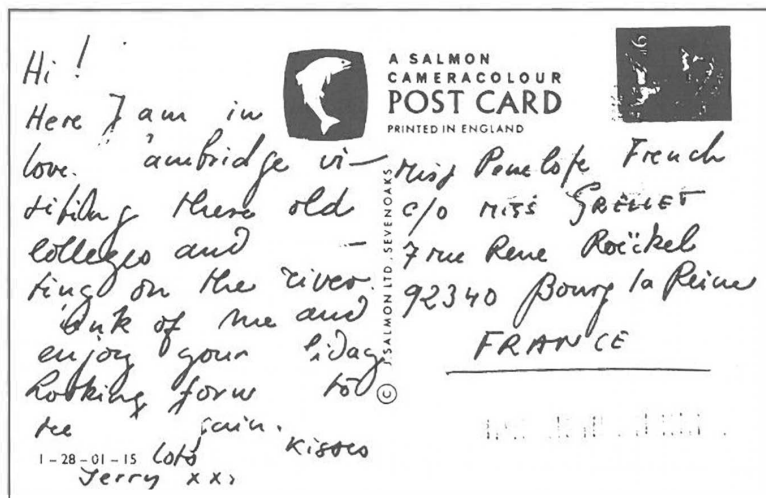 Hi !
Here I am in
love. ambridge vi-
siting these old
colleges and -
ting on the river.
ink of me and
enjoy your liday
Looking forw to
see gain.
lots kisses
Jerry xxx
1-28-01-15
A SALMON
CAMERACOLOUR
POST CARD
PRINTED IN ENGLAND
© J. SALMON LTD., SEVENOAKS
Miss Penelope French
c/o MISS GRELLET
7 rue Rene Roëckel
92340 Bourg la Reine
FRANCE